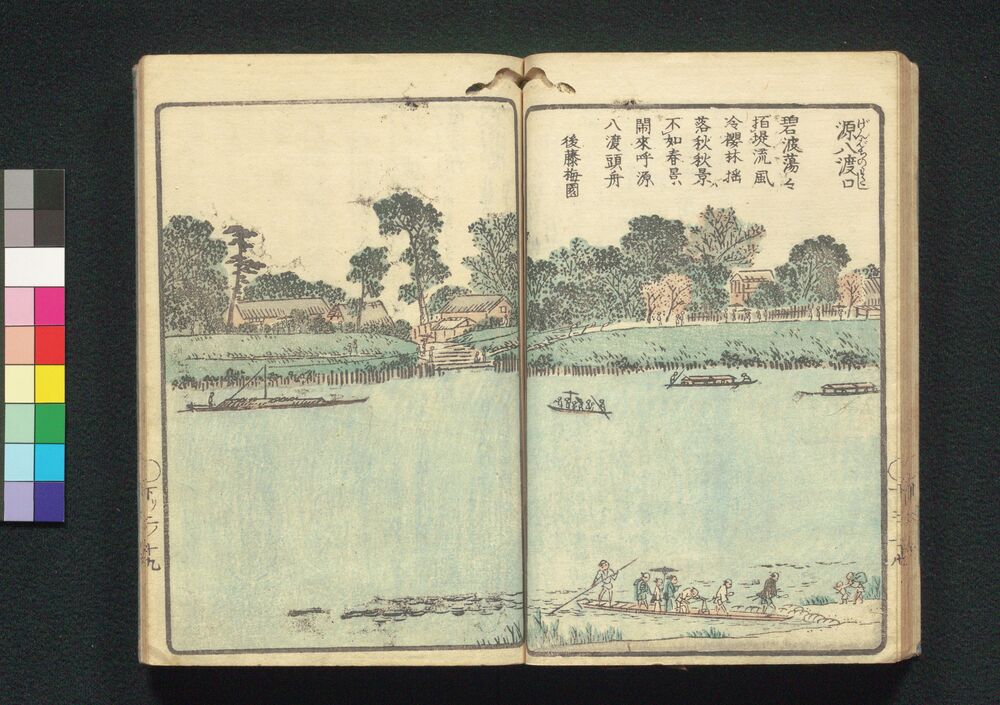 源八渡口
げんぱちのわたし
碧波蕩々
拍堤流風
冷櫻林搖
落秋秋景
不如春景
閙來呼源
八渡頭舟
後藤梅園
下リ二ノ十九